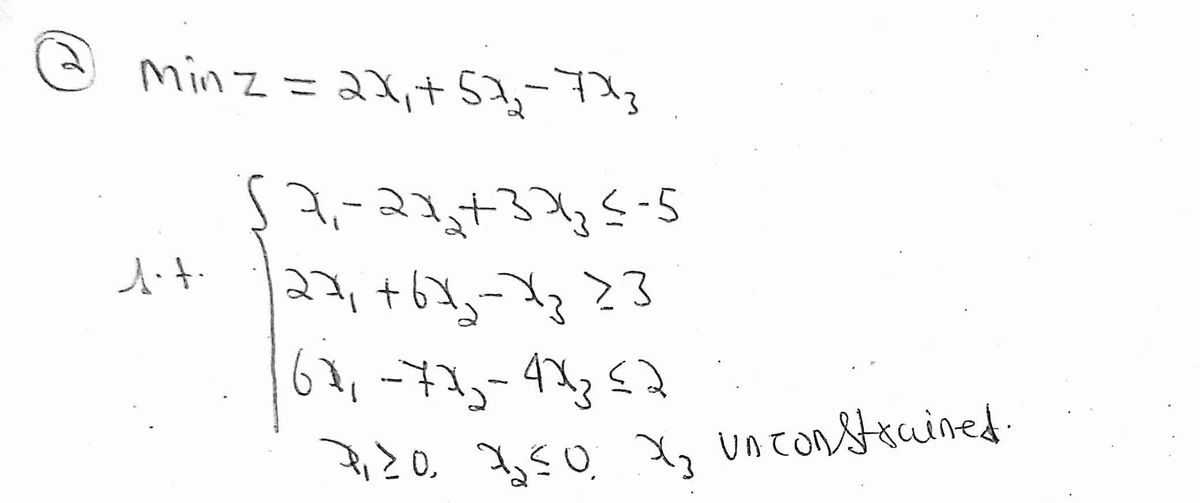 ② Min z = 2x₁ + 5x₂ - 7x₃
x₁ - 2x₂ + 3x₃ ≤ -5
s.t. 2x₁ + 6x₂ - x₃ ≥ 3
6x₁ - 7x₂ - 4x₃ ≤ 2
x₁ ≥ 0, x₂ ≤ 0, x₃ unconstrained.